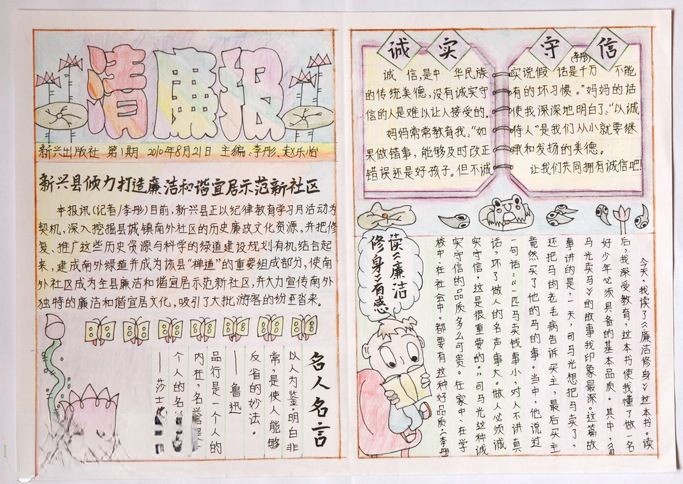 清廉报
新兴出版社 第1期 2010年8月21日 主编:李彤、赵乐怡
新兴县倾力打造廉洁和谐宜居示范新社区
本报讯(记者/李彤)目前,新兴县正以纪律教育学习月活动为
契机,深入挖掘县城镇南外社区的历史廉政文化资源,并把修
复、推广这些历史资源与科学的绿道建设规划有机结合起
来,建成南外绿道并成为该县“禅道”的重要组成部分,使南
外社区成为全县廉洁和谐宜居示范新社区,并大力宣传南外
独特的廉洁和谐宜居文化,吸引了大批游客的纷至沓来。
名人名言
以人为鉴,明白非
常,是使人能够
反省的妙法。
——鲁迅
品行是一个人的
内在,名誉
个人的名
——莎士
诚实守信
(李彤)
诚信,是中华民族
的传统美德,没有诚实守
信的人是难以让人接受的。
妈妈常常教育我,“如
果做错事,能够及时改正
错误还是好孩子。但不诚
实说假话是千万不能
有的坏习惯。”妈妈的话
使我深深地明白了,“以诚
待人”是我们从小就要继
承和发扬的美德。
让我们共同拥有诚信吧!
读《廉洁
修身》有感
今天,我读了《廉洁修身》这本书。读
后,我深受教育,这本书使我懂了做一名
好少年必须具备的基本品质。其中,《司
马光卖马》的故事我印象最深。这篇故
事讲的是:一天,司马光想把马卖了,
还把马的老毛病告诉买主,最后买主
竟然买了他的马的事。当中,他说过
一句话:“一匹马卖钱事小,对人不讲真
话,坏了做人的名声事大。做人必须诚
实守信,这是很重要的。”司马光这种诚
实守信的品质多么可贵。在家中、在学
校中、在社会中,都要有这种好品质。(李彤)